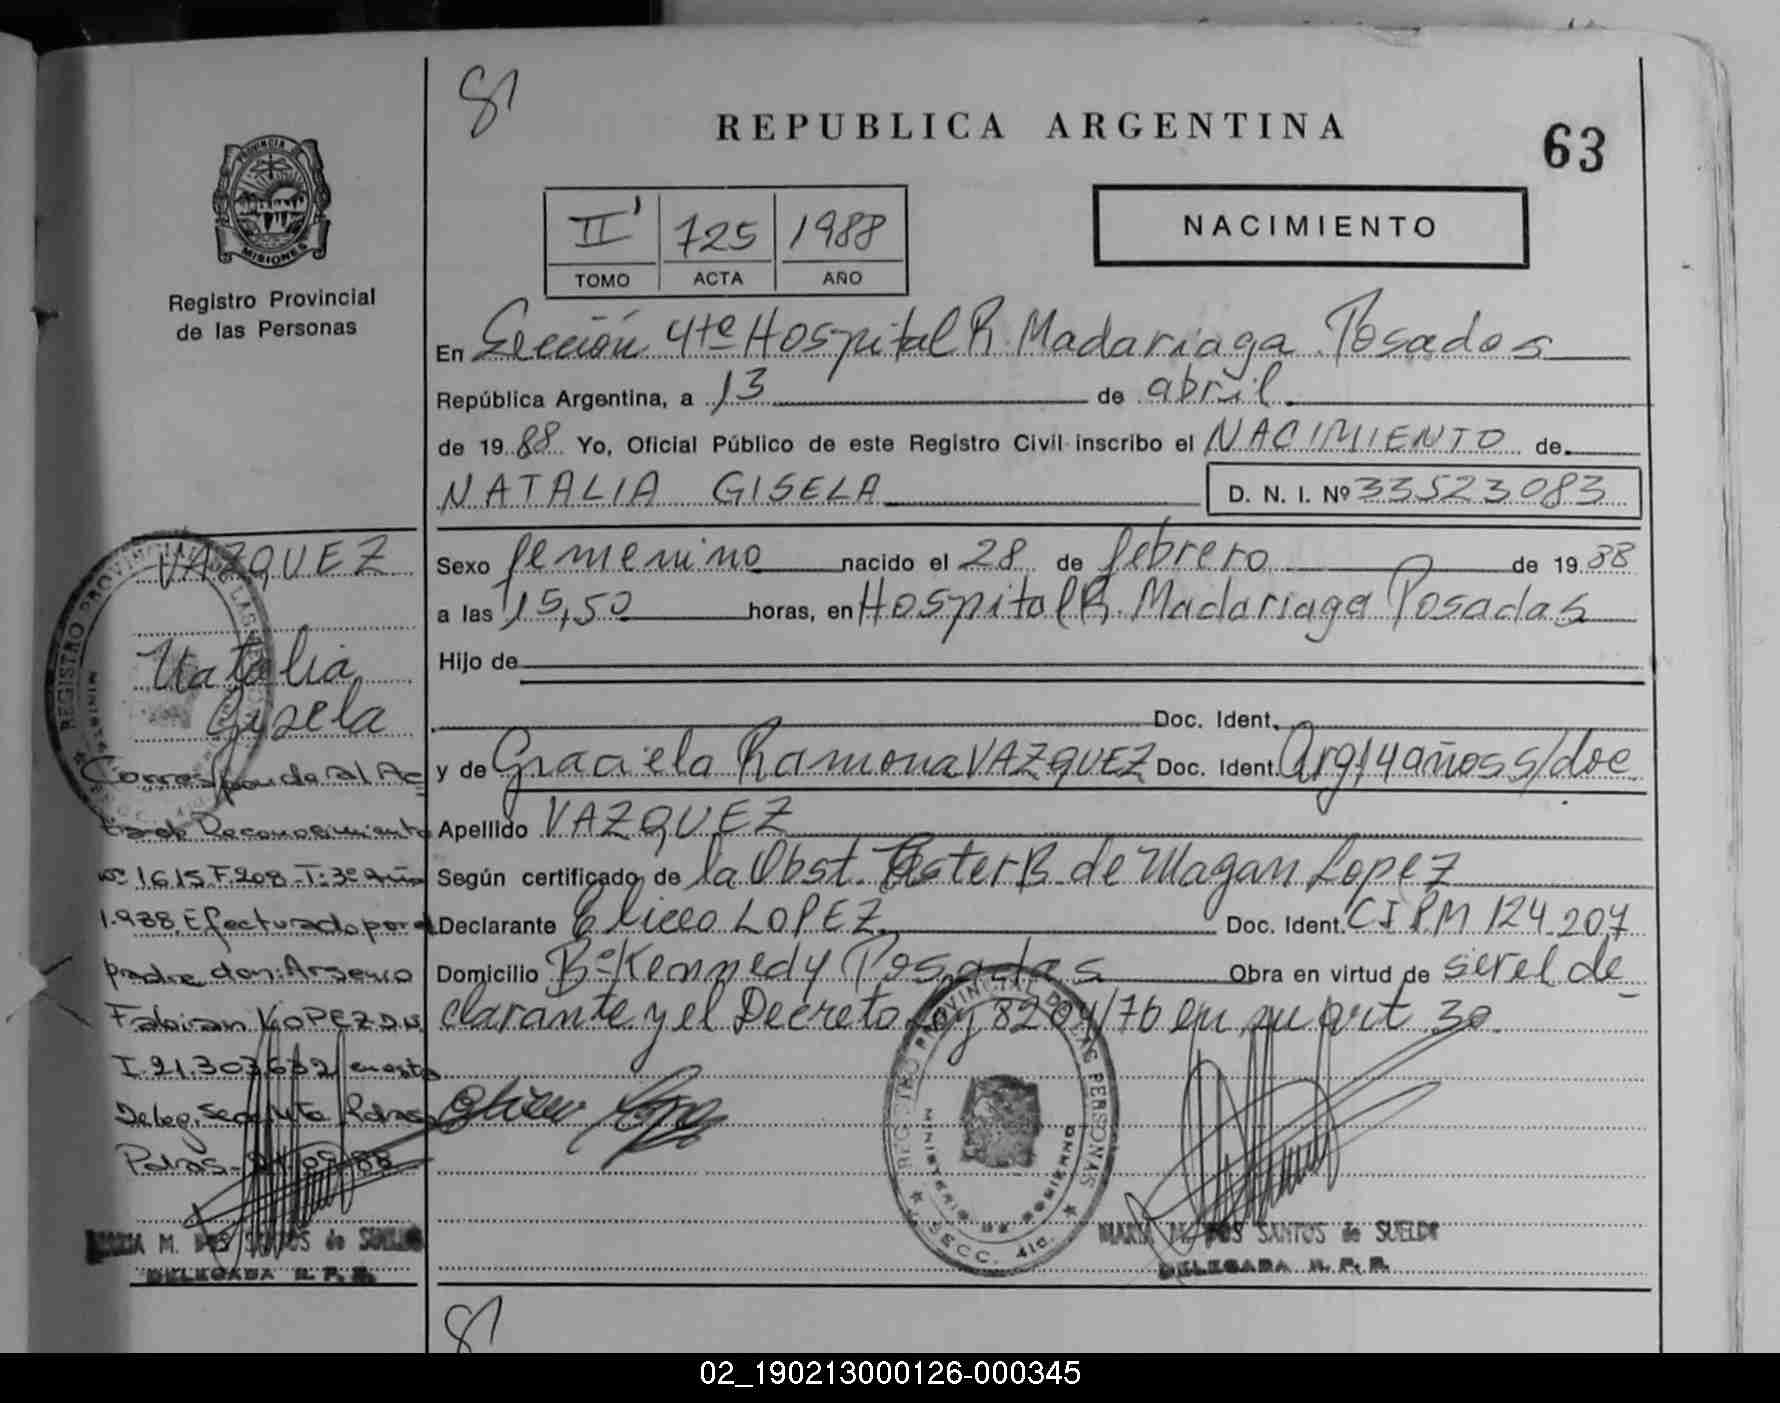 81
REPUBLICA ARGENTINA
63
PROVINCIA DE
MISIONES
Registro Provincial
de las Personas
II' 725 1988
TOMO ACTA AÑO
NACIMIENTO
En Sección 4ta Hospital R. Madariaga Posadas
República Argentina, a 13 de abril
de 1988 Yo, Oficial Público de este Registro Civil inscribo el NACIMIENTO de
NATALIA GISELA D. N. I. Nº 33523083
Sexo femenino nacido el 28 de febrero de 1988
a las 15,50 horas, en Hospital R. Madariaga Posadas
Hijo de
Doc. Ident.
y de Graciela Ramona VAZQUEZ Doc. Ident. Arg 14 años s/doc
Apellido VAZQUEZ
Según certificado de la Obst. Ester B. de Magan Lopez
Declarante Eliceo LOPEZ Doc. Ident. CI PM 124.207
Domicilio Bº Kennedy Posadas Obra en virtud de ser el de
clarante y el Decreto Ley 8204/76 en su art 30.
Eliceo Lopez
REGISTRO PROVINCIAL DE LAS PERSONAS
MINISTERIO DE GOBIERNO
SECC. 4ta.
MARIA M. DOS SANTOS de SUELDO
DELEGADA R. P. P.
VAZQUEZ
Natalia
Gisela
Corresponde al Ac
ta de Reconocimiento
Nº 1615 F. 208 - T: 3º Año
1.988. Efectuado por el
padre don: Arsenio
Fabian LOPEZ D.N.
I. 21.303.632 en esta
Deleg. Secc. 4ta Pdas
Pdas - 21/09/88
MARIA M. DOS SANTOS de SUELDO
DELEGADA R. P. P.
81
02_190213000126-000345